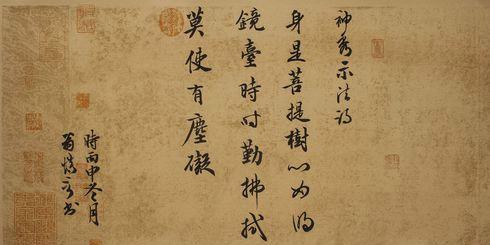 神秀示法詩
身是菩提樹心为明
鏡臺時时勤拂拭
莫使有塵礙
時丙申冬月
书